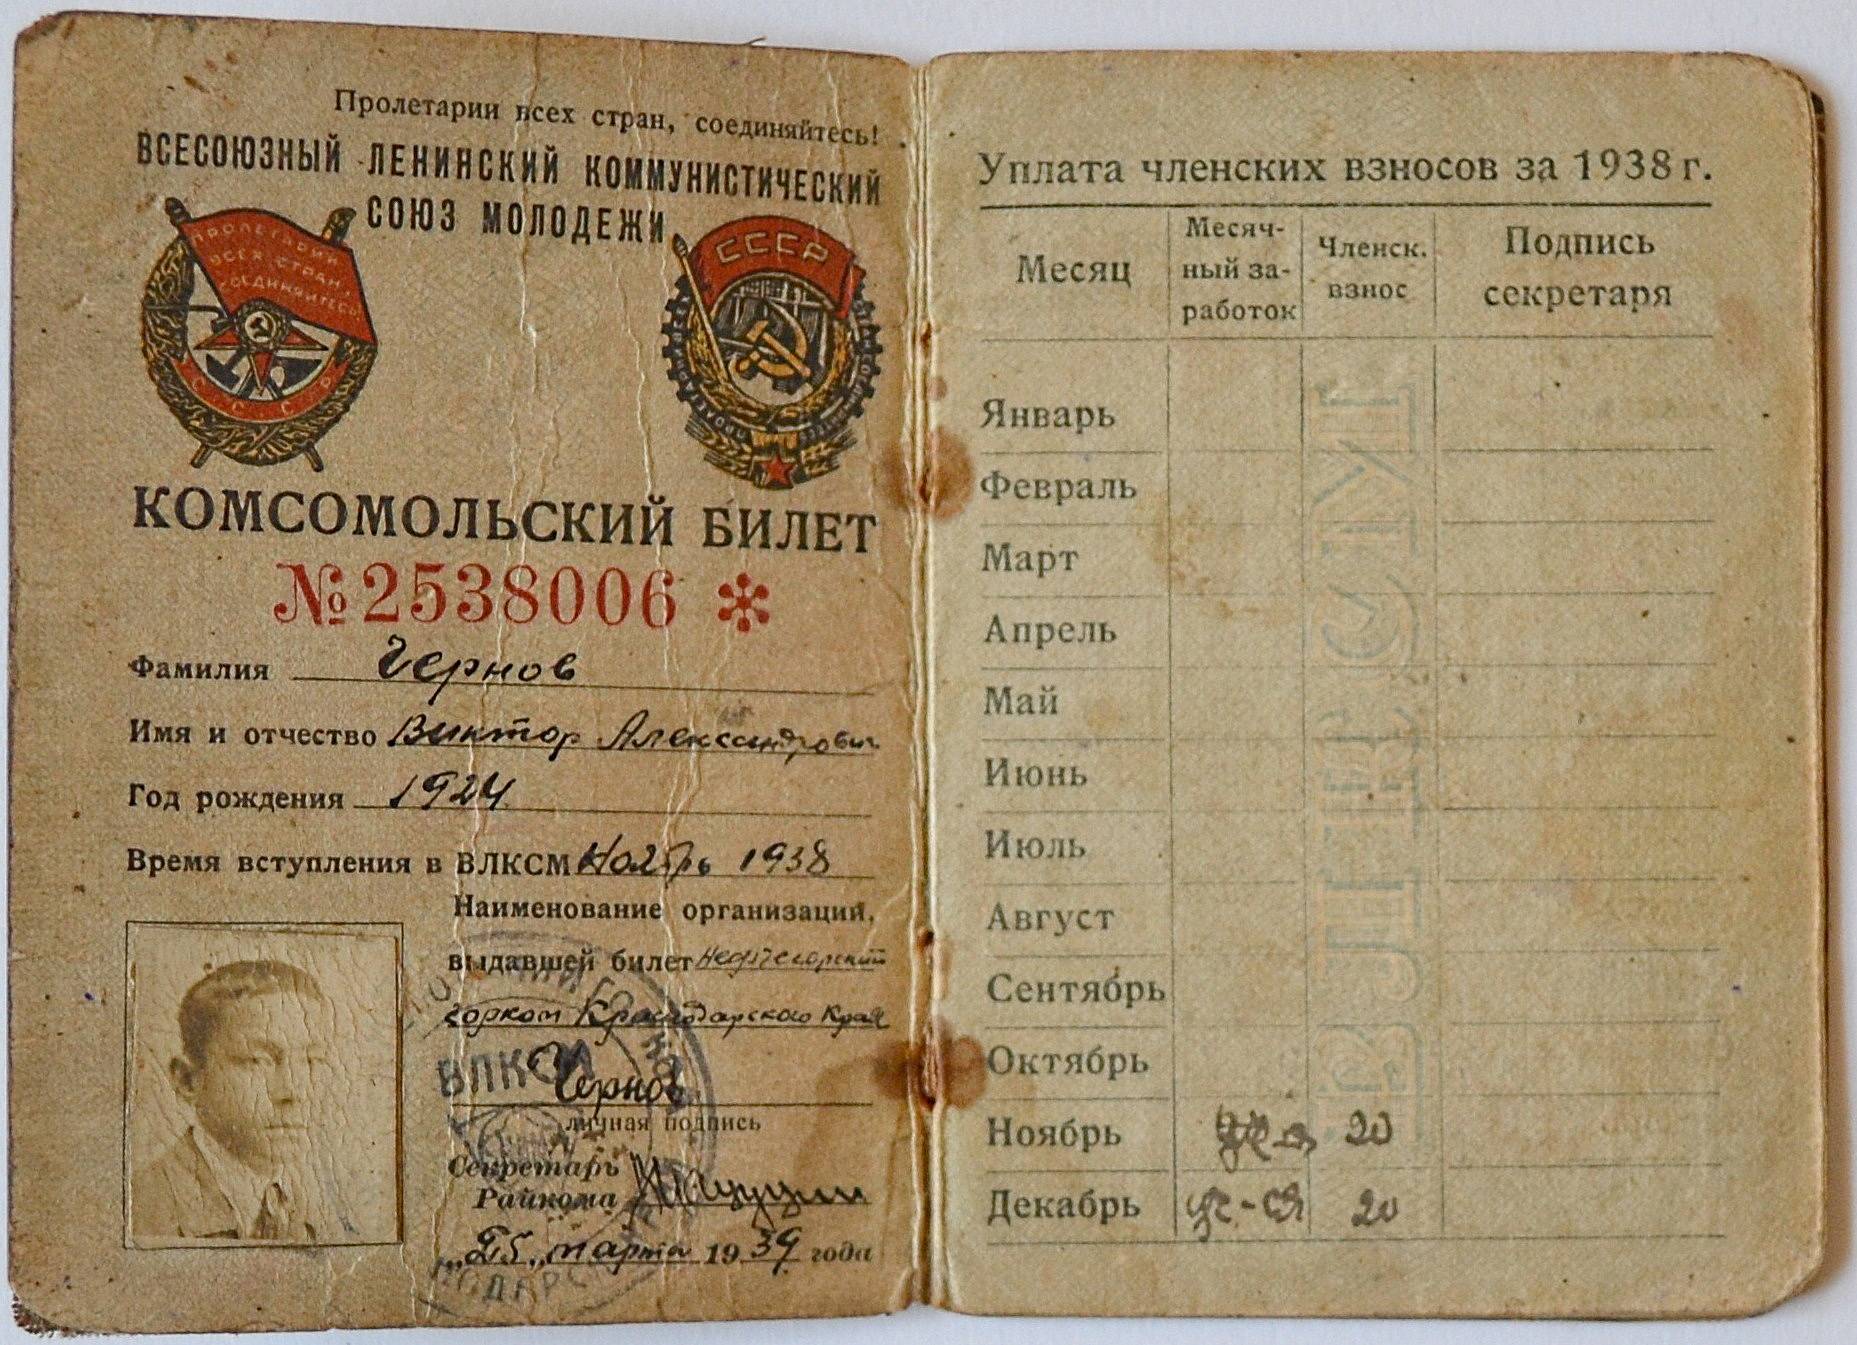 Пролетарии всех стран, соединяйтесь!
ВСЕСОЮЗНЫЙ ЛЕНИНСКИЙ КОММУНИСТИЧЕСКИЙ
СОЮЗ МОЛОДЕЖИ
ПРОЛЕТАРИИ
ВСЕХ СТРАН
СОЕДИНЯЙТЕСЬ
СССР
СССР
КОМСОМОЛЬСКИЙ БИЛЕТ
№ 2538006 *
Фамилия Чернов
Имя и отчество Виктор Александрович
Год рождения 1924
Время вступления в ВЛКСМ Ноябрь 1938
Наименование организаций,
выдавшей билет Нефтегорский
горком Краснодарского Края
ВЛКСМ
Чернов
личная подпись
Секретарь
Райкома
„25„ марта 1939 года
Уплата членских взносов за 1938 г.
Месяц
Месяч-
ный за-
работок
Членск.
взнос
Подпись
секретаря
Январь
Февраль
Март
Апрель
Май
Июнь
Июль
Август
Сентябрь
Октябрь
Ноябрь 20
Декабрь уч-ся 20